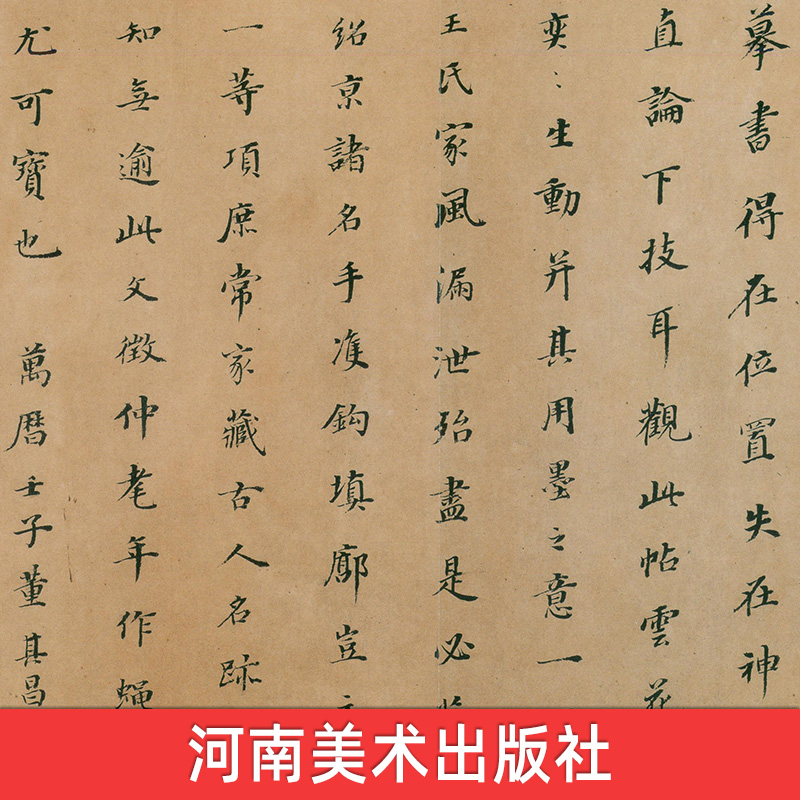 摹書得在位置失在神
直論下技耳觀此帖雲花
奕〻生動并其用墨之意一
王氏家風漏泄殆盡是必
絽京諸名手准鈎填廓豈
一等項庶常家藏古人名跡
知無逾此文徵仲老年作蝇
尤可寶也 萬曆壬子董其昌
河南美术出版社